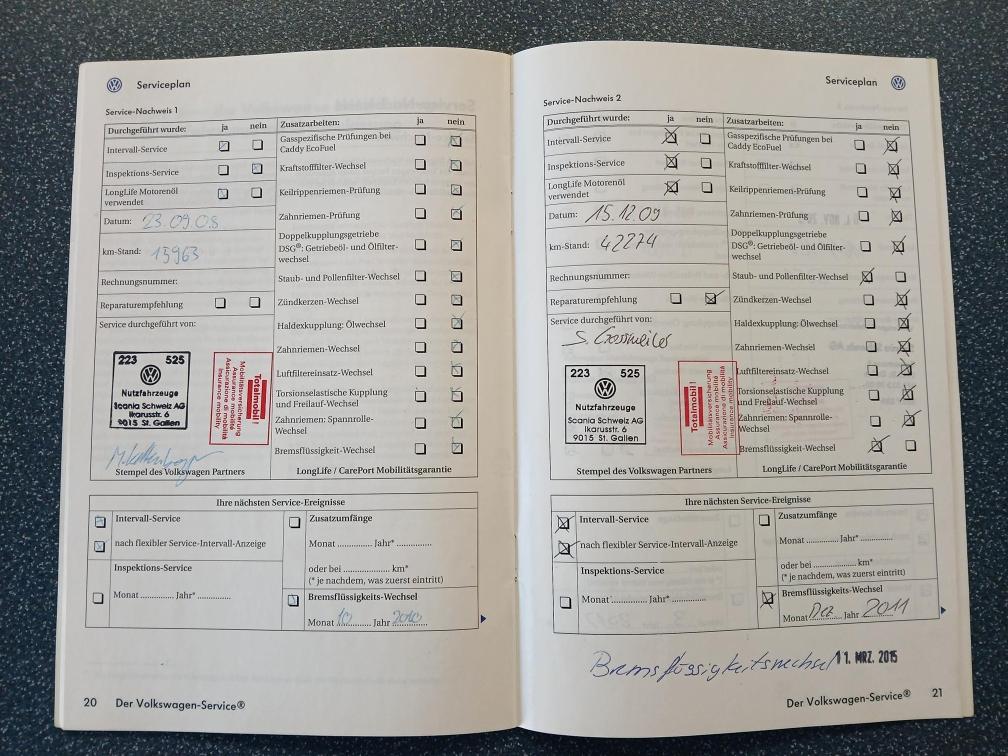 Serviceplan
Service-Nachweis 1
Durchgeführt wurde: ja nein
Intervall-Service
Inspektions-Service
LongLife Motorenöl
verwendet
Datum: 23.09.08
km-Stand: 15963
Rechnungsnummer:
Reparaturempfehlung
Service durchgeführt von:
223 525
Nutzfahrzeuge
Scania Schweiz AG
Ikarusstr. 6
9015 St. Gallen
Totalmobil!
Mobilitätsversicherung
Assurance mobilité
Assicurazione di mobilità
insurance mobility
Stempel des Volkswagen Partners
Zusatzarbeiten: ja nein
Gasspezifische Prüfungen bei
Caddy EcoFuel
Kraftstofffilter-Wechsel
Keilrippenriemen-Prüfung
Zahnriemen-Prüfung
Doppelkupplungsgetriebe
DSG®: Getriebeöl- und Ölfilter-
wechsel
Staub- und Pollenfilter-Wechsel
Zündkerzen-Wechsel
Haldexkupplung: Ölwechsel
Zahnriemen-Wechsel
Luftfiltereinsatz-Wechsel
Torsionselastische Kupplung
und Freilauf-Wechsel
Zahnriemen: Spannrolle-
Wechsel
Bremsflüssigkeit-Wechsel
LongLife / CarePort Mobilitätsgarantie
Ihre nächsten Service-Ereignisse
Intervall-Service
nach flexibler Service-Intervall-Anzeige
Inspektions-Service
Monat .............. Jahr* ............
Zusatzumfänge
Monat .............. Jahr* ..............
oder bei .................... km*
(* je nachdem, was zuerst eintritt)
Bremsflüssigkeits-Wechsel
Monat 10 Jahr 2010
20 Der Volkswagen-Service®
Serviceplan
Service-Nachweis 2
Durchgeführt wurde: ja nein
Intervall-Service
Inspektions-Service
LongLife Motorenöl
verwendet
Datum: 15.12.09
km-Stand: 42274
Rechnungsnummer:
Reparaturempfehlung
Service durchgeführt von:
223 525
Nutzfahrzeuge
Scania Schweiz AG
Ikarusstr. 6
9015 St. Gallen
Totalmobil!
Mobilitätsversicherung
Assurance mobilité
Assicurazione di mobilità
insurance mobility
Stempel des Volkswagen Partners
Zusatzarbeiten: ja nein
Gasspezifische Prüfungen bei
Caddy EcoFuel
Kraftstofffilter-Wechsel
Keilrippenriemen-Prüfung
Zahnriemen-Prüfung
Doppelkupplungsgetriebe
DSG®: Getriebeöl- und Ölfilter-
wechsel
Staub- und Pollenfilter-Wechsel
Zündkerzen-Wechsel
Haldexkupplung: Ölwechsel
Zahnriemen-Wechsel
Luftfiltereinsatz-Wechsel
Torsionselastische Kupplung
und Freilauf-Wechsel
Zahnriemen: Spannrolle-
Wechsel
Bremsflüssigkeit-Wechsel
LongLife / CarePort Mobilitätsgarantie
Ihre nächsten Service-Ereignisse
Intervall-Service
nach flexibler Service-Intervall-Anzeige
Inspektions-Service
Monat .............. Jahr* ............
Zusatzumfänge
Monat .............. Jahr* ..............
oder bei .................... km*
(* je nachdem, was zuerst eintritt)
Bremsflüssigkeits-Wechsel
Monat Dez Jahr 2011
Bremsflüssigkeitswechsel 11. MRZ. 2015
Der Volkswagen-Service® 21